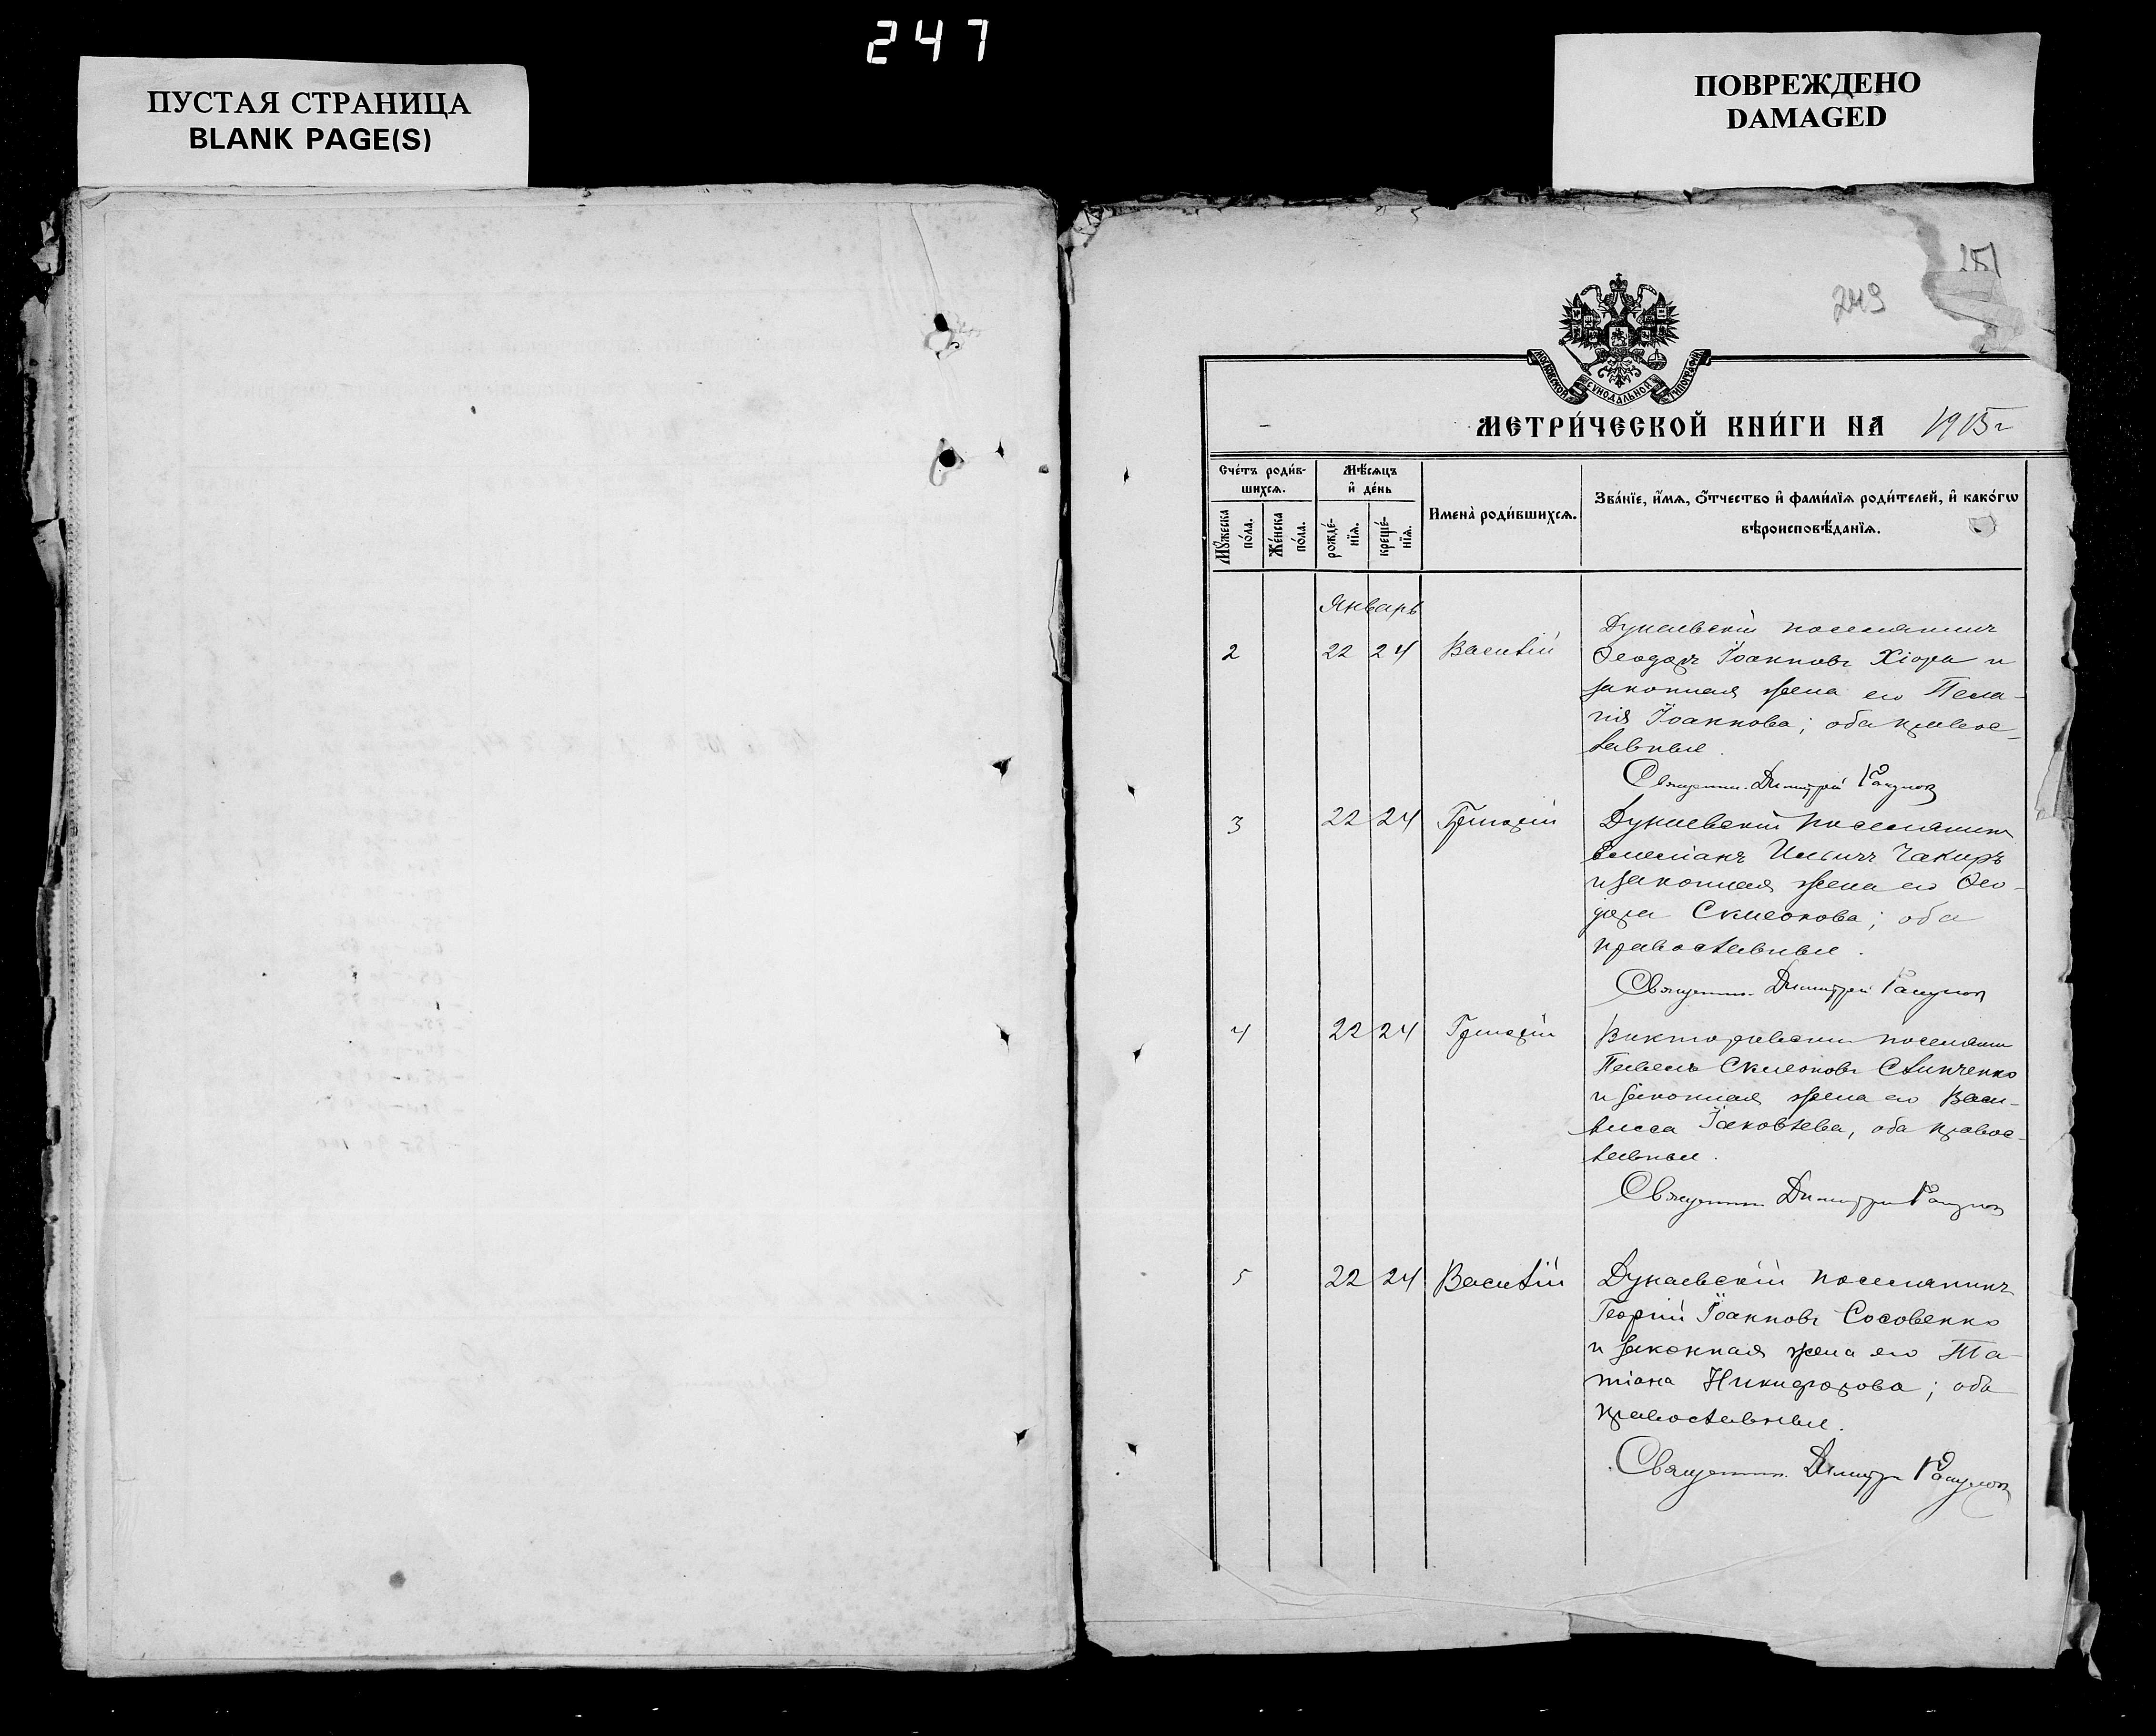 247
ПУСТАЯ СТРАНИЦА
BLANK PAGE(S)
ПОВРЕЖДЕНО
DAMAGED
249
МОСКОВСКОЙ СѴНОДАЛЬНОЙ ТИПОГРАФІИ
МЕТРИ́ЧЕСКОЙ КНИ́ГИ НА 1915 г
Сче́тъ роди́в-
шихсѧ.
Мѣ́сѧцъ
и҆ де́нь
Мꙋ́жеска по́ла.
Же́нска по́ла.
рожде́-нїѧ.
креще́-нїѧ.
И҆мена̀ роди́вшихсѧ.
Зва́нїе, и҆́мѧ, ѻ҆́тчество и҆ фами́лїѧ роди́телей, и҆ како́гѡ
вѣроисповѣ́данїѧ.
Январь
2 22 24 Василій
Дунаевскій поселянинъ
Ѳеодоръ Іоанновъ Хіора и
законная жена его Пела-
гія Іоаннова; оба правос-
лавные.
Священн. Димитрій
3 22 24 Григорій
Дунаевскій поселянинъ
Емеліанъ Ильичъ Чакиръ
и законная жена его Ѳео-
дора Симеонова; оба
православные.
Священн. Димитрій
4 22 24 Григорій
Викторовскій поселянин
Павелъ Симеоновъ Слинченко
и законная жена его Васи-
лисса Іаковлева, оба правос-
лавные.
Священн. Димитрій
5 22 24 Василій
Дунаевскій поселянинъ
Георгій Іоанновъ Сосовенко
и законная жена его Та-
тіана Никифорова; оба
православные.
Священн. Димитрій